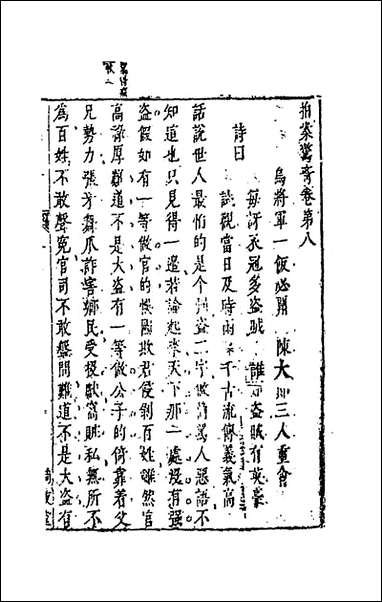 拍案驚奇卷第八
烏將軍一飯必酬　陳大郎三人重會
詩曰
每訝衣冠多盜賊　誰知盜賊有英豪
試觀當日及時雨　千古流傳義氣高
話說世人最怕的是个強盜二字做罵人惡語不
知道也只見得一邊若論起來天下那一處沒有強
盜假如有一等做官的悞國欺君侵剝百姓雖然官
高祿厚難道不是大盜有一等做公子的倚靠着父
兄勢力張牙舞爪詐害鄉民受投獻窩賍私無所不
為百姓不敢聲冤官司不敢盤問難道不是大盜有